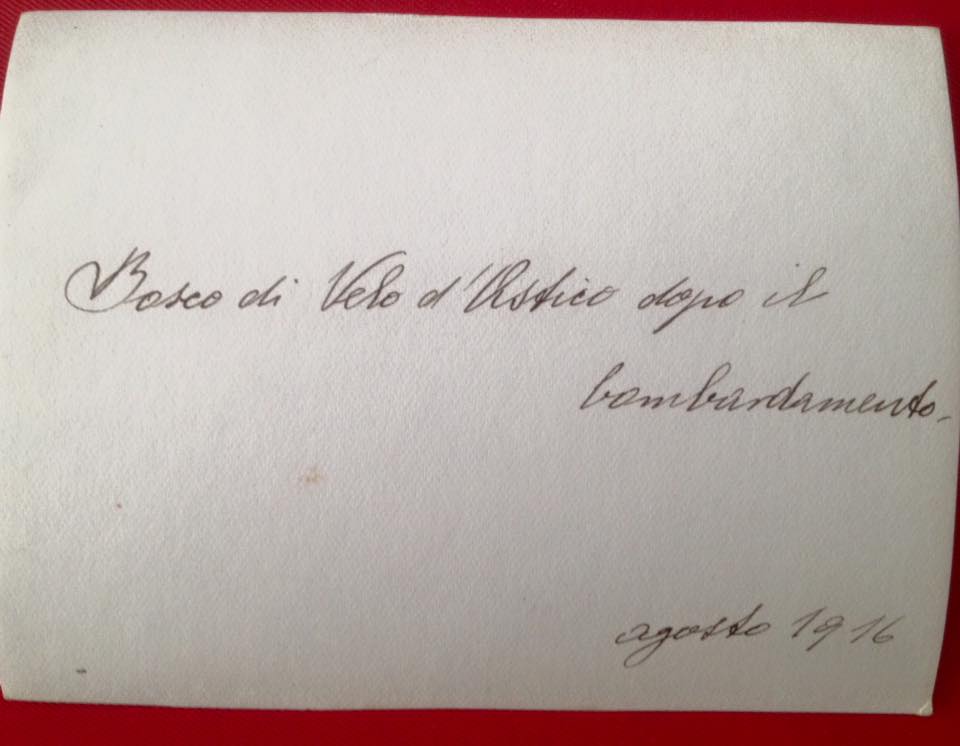 Bosco di Velo d'Astico dopo il
bombardamento.
agosto 1916